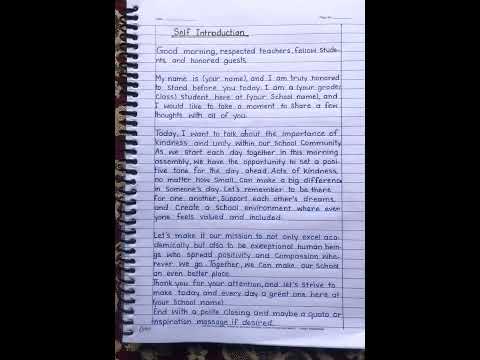 Self Introduction
Good morning, respected teachers, fellow stude-
nts and honored guests.
My name is (your name), and I am truly honored
to stand before you today. I am a (your grade/
class) student here at (your school name), and
I would like to take a moment to share a few
thoughts with all of you.
Today, I want to talk about the importance of
kindness and unity within our school community
As we start each day together in this morning
assembly, we have the opportunity to set a posi-
tive tone for the day ahead. Acts of kindness,
no matter how small, can make a big difference
in someone's day. Let's remember to be there
for one another, support each other's dreams,
and create a school environment where ever
yone feels valued and included.
Let's make it our mission to not only excel aca-
demically but also to be exeeptional human bein-
gs who spread positivity and compassion whe-
rever we go. Together, we can make our school
an even better place.
Thank you for your attention, and let's strive to
make today and every day a great one here at
(your school name).
End with a polite closing and maybe a quota or
inspiration massage if desired.